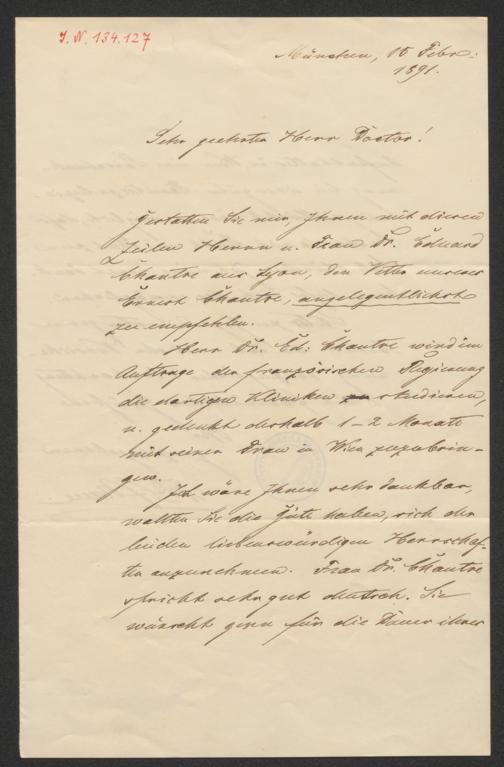 J. N. 134.127
München, 15 Febr.
1891.
Sehr geehrter Herr Doctor!
Gestatten Sie mir, Ihnen mit diesen
Zeilen Herrn u. Frau Dr. Eduard
Chantre aus Lyon, den Vetter unseres
Ernest Chantre, angelegentlichst
zu empfehlen.
Herr Dr. Ed: Chantre wird im
Auftrage der französischen Regierung
die dortigen Kliniken zu studieren,
u. gedenkt deshalb 1-2 Monate
mit seiner Frau in Wien zuzubrin-
gen.
Ich wäre Ihnen sehr dankbar,
wollten Sie die Güte haben, sich der
beiden liebenswürdigen Herrschaf-
ten anzunehmen. Frau Dr. Chantre
spricht sehr gut deutsch. Sie
wünscht gern für die Dauer ihres